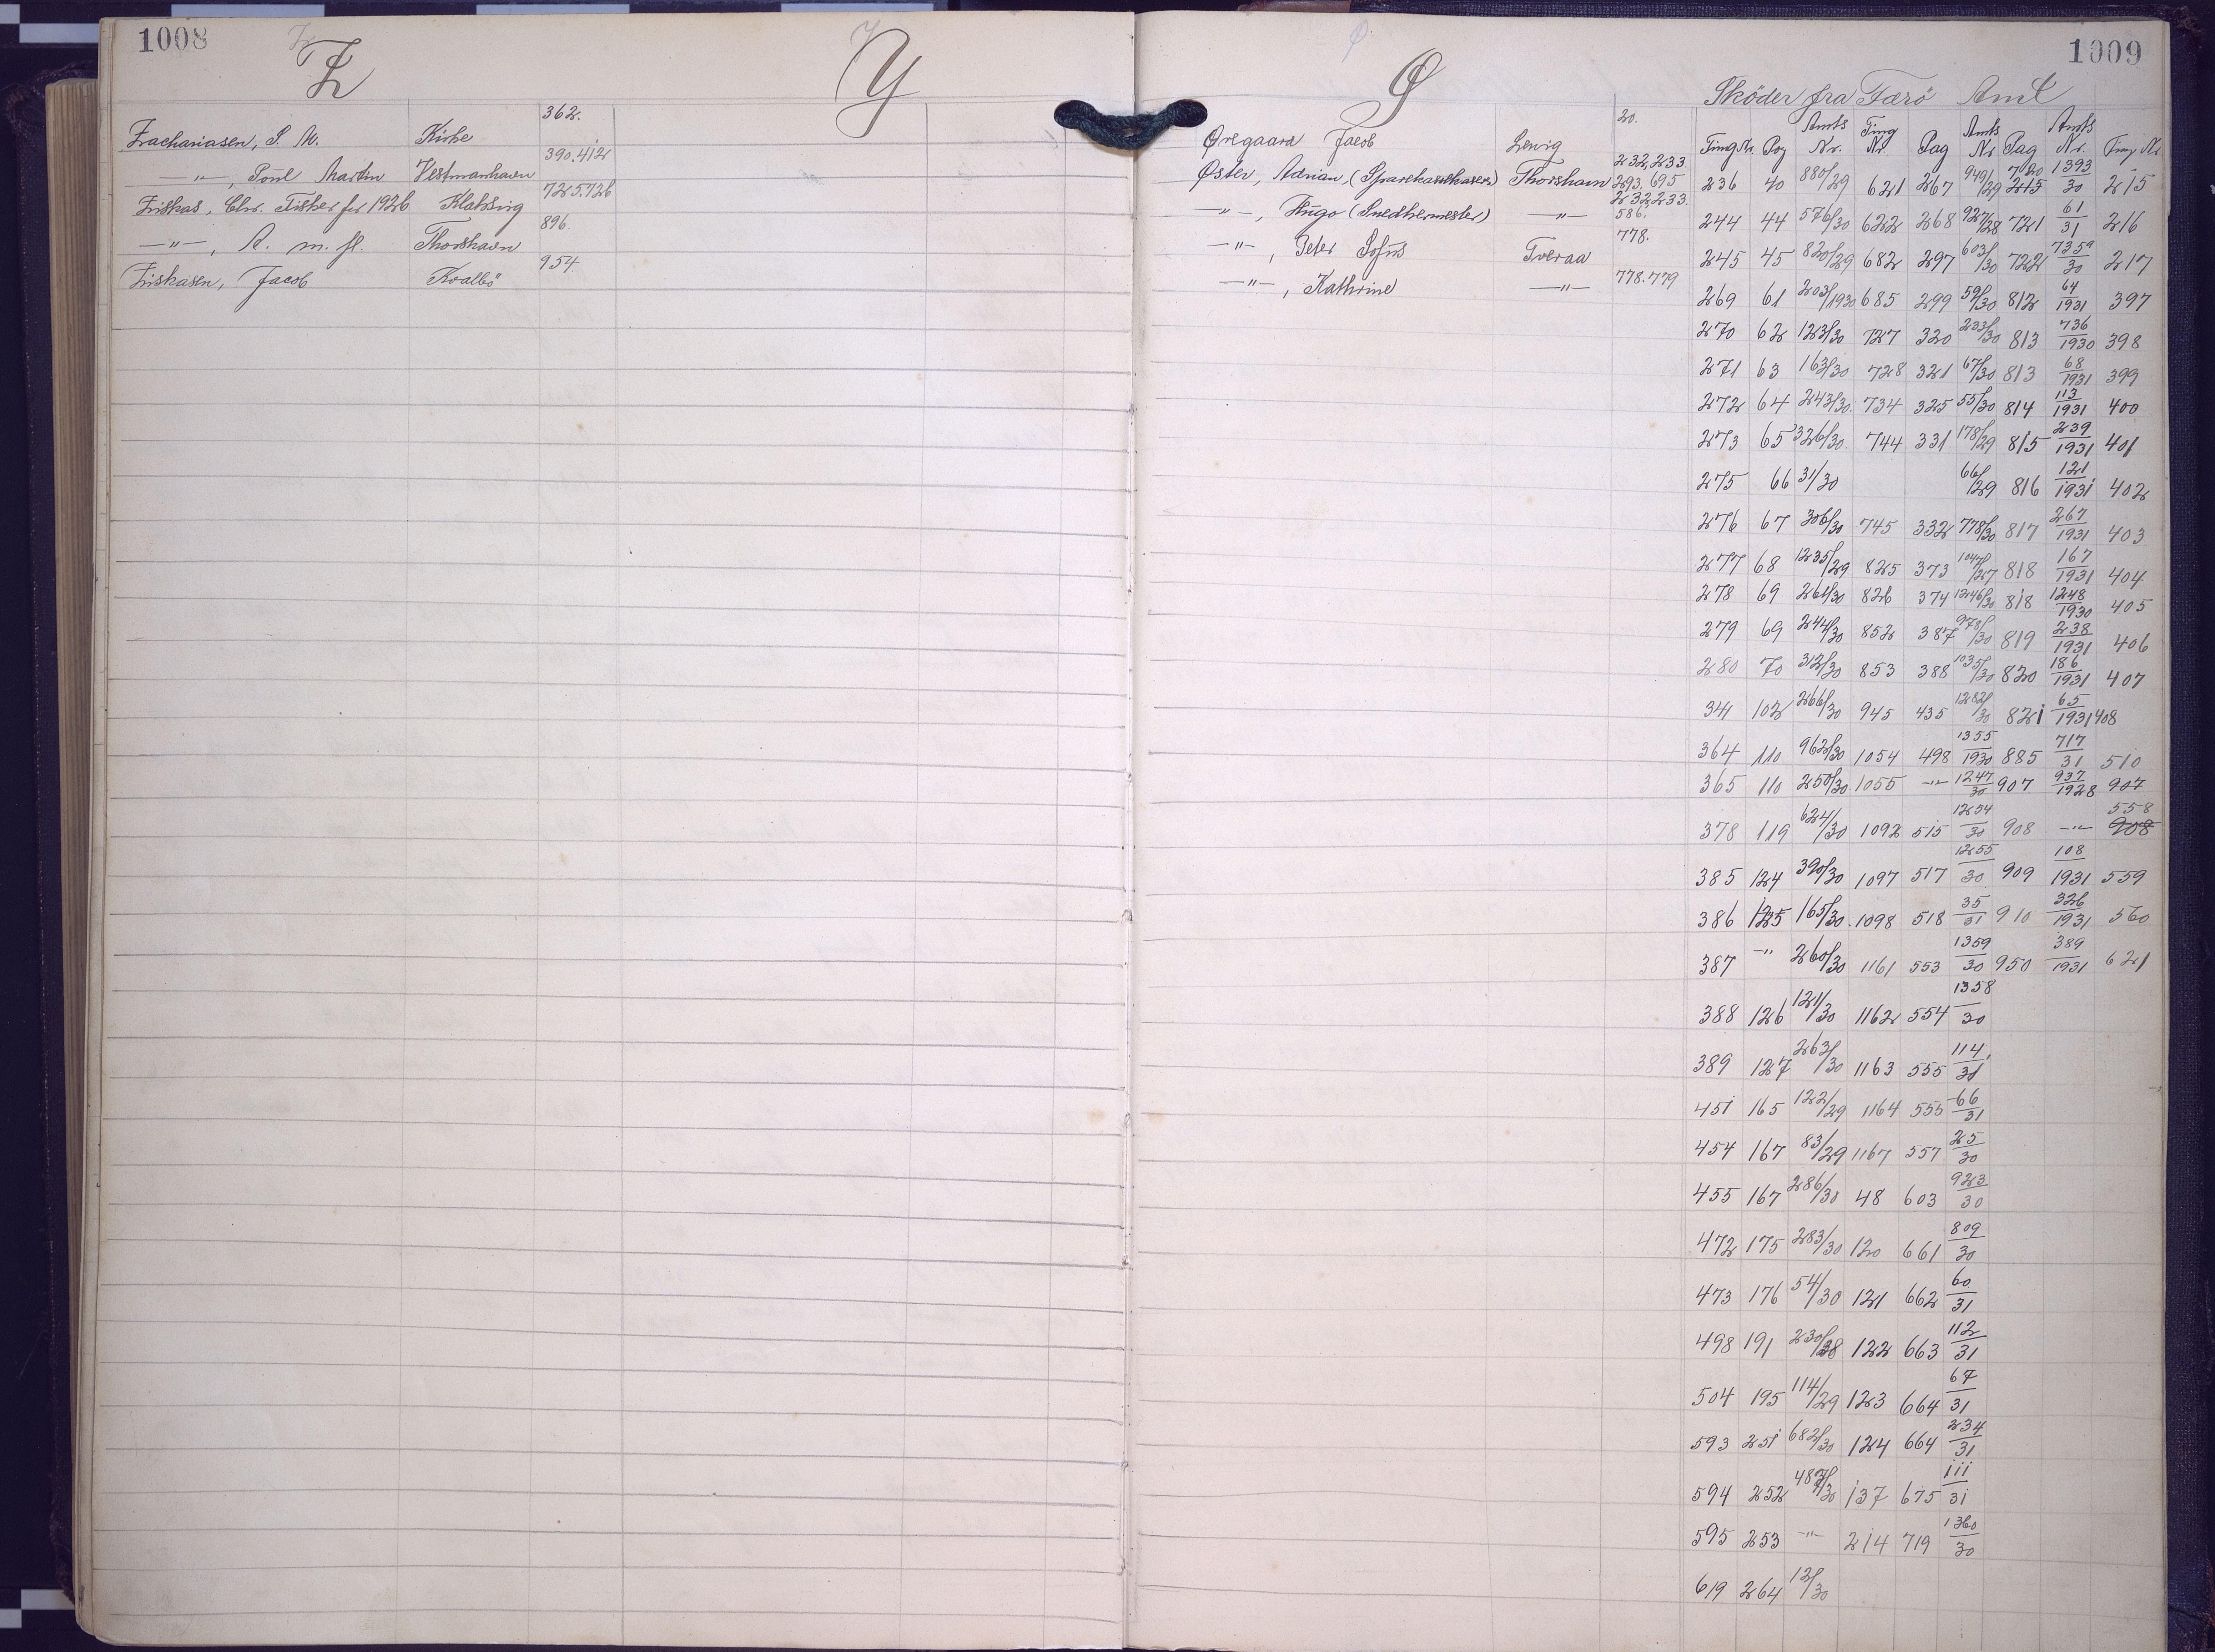 1008
Z Y
362.
Zachariasen, S. M. Kirke
390.412
—"—, Poul Martin Vestmanhavn
725.726
Ziskas, Chr. Fisker før 1926 Klaksvig
896.
—"—, A. m. fl. Thorshavn
954.
Ziskasen, Jacob Kvalbö
Ø
1009
Sköder fra Færö Amt
20.
Øregaard Jacob
232,233.
Øster, Adrian, (Sparekassekasserer) Thorshavn 293. 695
232,233.
—"—, Hugo (Smedhermester) —"— 586.
778.
—"—, Peter Sofus Tveraa
—"—, Kathrine —"— 778.779
Ting Nr. Pag Amts Nr. Ting Nr. Pag Amts Nr Pag Amts Nr. Ting Nr
236 40 880/29 621 267 949/29 720 215 1393/30 215
244 44 576/30 622 268 927/28 721 61/31 216
245 45 820/29 682 297 603/30 722 7359/30 217
269 61 203/1930 685 299 59/30 812 64/1931 397
270 62 123/30 727 320 233/30 813 736/1930 398
271 63 163/30 728 321 67/30 813 68/1931 399
272 64 243/30. 734 325 55/30 814 113/1931 400
273 65 326/30. 744 331 178/29 815 239/1931 401
275 66 31/30 66/29 816 121/1931 402
276 67 306/30 745 332 778/30 817 267/1931 403
277 68 1235/29 825 373 1047/27 818 167/1931 404
278 69 261/30 826 374 1246/30 818 1248/1930 405
279 69 244/30 852 387 978/30 819 238/1931 406
280 70 312/30 853 388 1035/30 820 186/1931 407
341 102 266/30 945 435 1282/30 821 65/1931 408
364 110 962/30 1054 498 1355/1930 885 717/31 510
365 110 250/30. 1055 —"— 1247/30 907 937/1928 907
378 119 624/30 1092 515 1254/30 908 —"— 908 558
385 124 390/30 1097 517 1255/30 909 108/1931 559
386 125 165/30. 1098 518 35/31 910 326/1931 560
387 —" 260/30 1161 553 1359/30 950 389/1931 621
388 126 121/30 1162 554 1358/30
389 127 263/30 1163 555 114/31
451 165 122/29 1164 555 66/31
454 167 83/29 1167 557 25/30
455 167 286/30 48 603 923/30
472 175 283/30 120 661 809/30
473 176 54/30 121 662 60/31
498 191 230/28 122 663 112/31
504 195 114/29 123 664 67/31
593 251 682/30 124 664 234/31
594 252 487/30 137 675 111/31
595 253 —"— 214 719 1360/30
619 264 12/30